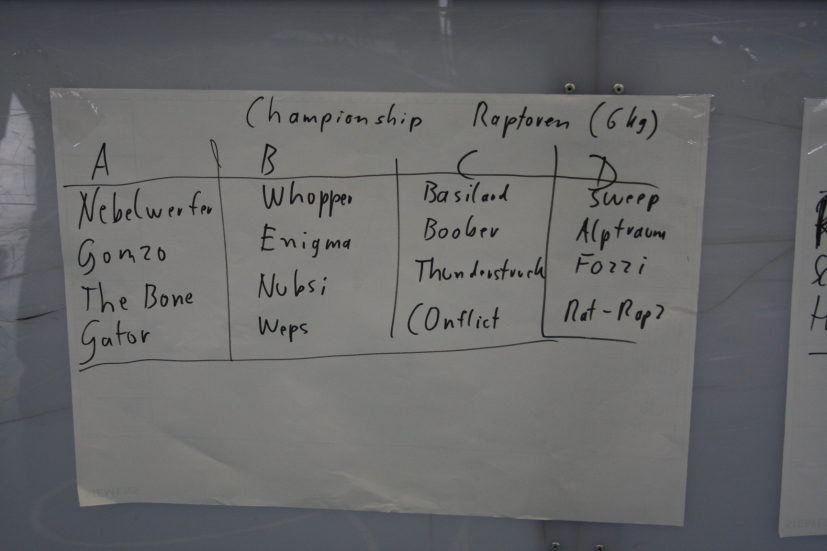 Championship Raptoren (6kg)
A B C D
Nebelwerfer Whopper Basilard Sweep
Gonzo Enigma Boober Alptraum
The Bone Nubsi Thunderstruck Fozzi
Gator Weps Conflict Rat-Rap?